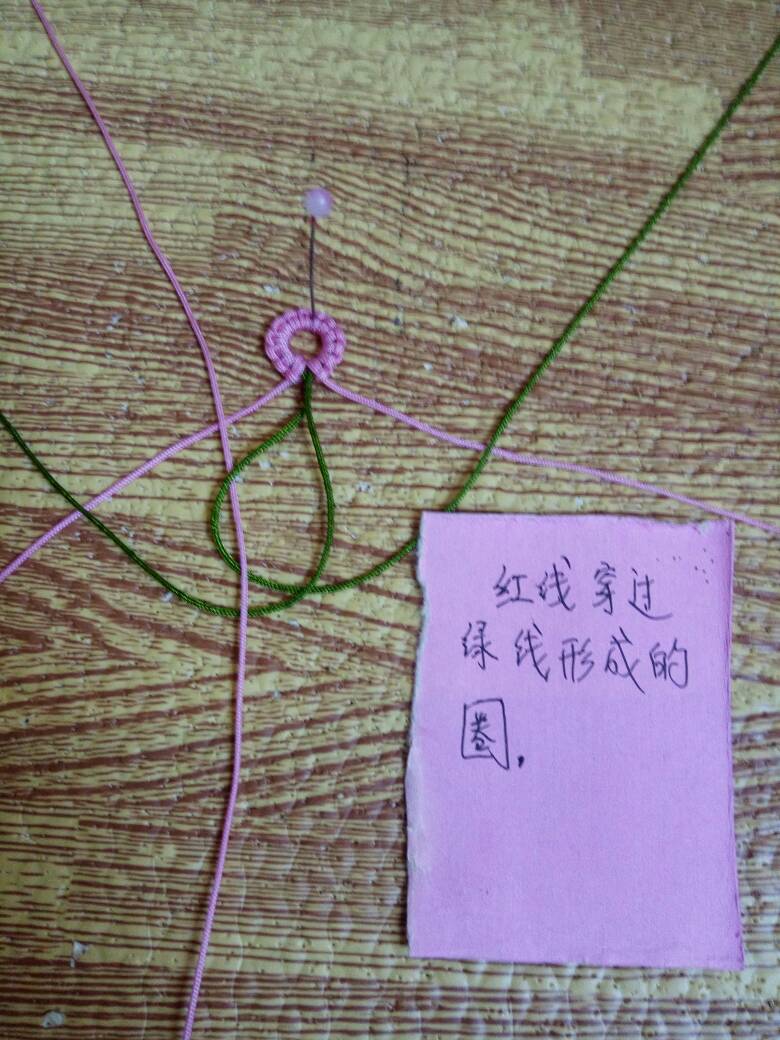 红线穿过
绿线形成的
圈，